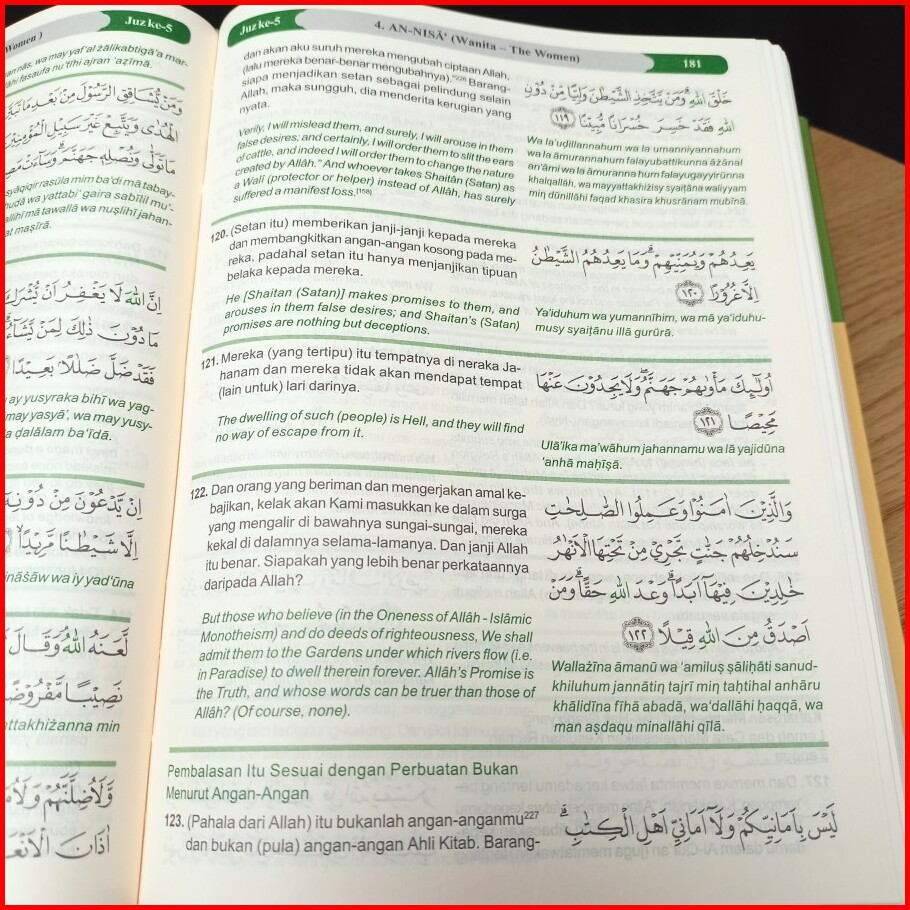 Women )
Juz ke-5
an nās, wa may yaf‘al żālikabtigā’a mar-
lāhi fasaufa nu’tīhi ajran ‘aẓīmā.
وَمَنْ يُّشَاقِقِ الرَّسُوْلَ مِنْۢ بَعْدِ مَا تَبَيَّنَ
الْهُدٰى وَيَتَّبِعْ غَيْرَ سَبِيْلِ الْمُؤْمِنِيْنَ
مَا تَوَلّٰى وَنُصْلِهٖ جَهَنَّمَۗ وَسَاۤءَتْ
syāqiqir rasūla mim ba‘di mā tabay-
hudā wa yattabi‘ gaira sabīlil mu’-
allihī mā tawallā wa nuṣlihī jahan-
at maṣīrā.
اِنَّ اللّٰهَ لَا يَغْفِرُ اَنْ يُّشْرَكَ
مَا دُوْنَ ذٰلِكَ لِمَنْ يَّشَاۤءُ
فَقَدْ ضَلَّ ضَلٰلًا ۢ بَعِيْدًا
ay yusyraka bihī wa yag-
may yasyā’, wa may yusy-
a ḍalālam ba‘īdā.
اِنْ يَّدْعُوْنَ مِنْ دُوْنِهٖٓ
اِلَّا شَيْطٰنًا مَّرِيْدًاۙ
ināśāw wa iy yad‘ūna
لَّعَنَهُ اللّٰهُ ۘ وَقَالَ
نَصِيْبًا مَّفْرُوْضًا
attakhiżanna min
وَّلَاُضِلَّنَّهُمْ وَلَاُمَ
اٰذَانَ الْاَنْعَا
Juz ke-5
4. AN-NISĀ’ (Wanita – The Women)
181
dan akan aku suruh mereka mengubah ciptaan Allah,
(lalu mereka benar-benar mengubahnya).”226 Barang-
siapa menjadikan setan sebagai pelindung selain
Allah, maka sungguh, dia menderita kerugian yang
nyata.
خَلْقَ اللّٰهِ ۗ وَمَنْ يَّتَّخِذِ الشَّيْطٰنَ وَلِيًّا مِّنْ دُوْنِ
اللّٰهِ فَقَدْ خَسِرَ خُسْرَانًا مُّبِيْنًا ١١٩
Verily, I will mislead them, and surely, I will arouse in them
false desires; and certainly, I will order them to slit the ears
of cattle, and indeed I will order them to change the nature
created by Allâh.” And whoever takes Shaitân (Satan) as
a Walî (protector or helper) instead of Allâh, has surely
suffered a manifest loss.[158]
Wa la’uḍillannahum wa la umanniyannahum
wa la āmurannahum falayubattikunna āżānal
an‘āmi wa la āmuranna hum falayugayyirūnna
khalqallah, wa mayyattakhiżisy syaiṭāna waliyyam
min dūnillāhi faqad khasira khusrānam mubīnā.
120. (Setan itu) memberikan janji-janji kepada mereka
dan membangkitkan angan-angan kosong pada me-
reka, padahal setan itu hanya menjanjikan tipuan
belaka kepada mereka.
يَعِدُهُمْ وَيُمَنِّيْهِمْۗ وَمَا يَعِدُهُمُ الشَّيْطٰنُ
اِلَّا غُرُوْرًا ١٢٠
He [Shaitan (Satan)] makes promises to them, and
arouses in them false desires; and Shaitan’s (Satan)
promises are nothing but deceptions.
Ya‘iduhum wa yumannīhim, wa mā ya‘iduhu-
musy syaiṭānu illā gurūrā.
121. Mereka (yang tertipu) itu tempatnya di neraka Ja-
hanam dan mereka tidak akan mendapat tempat
(lain untuk) lari darinya.
اُولٰۤىِٕكَ مَأْوٰىهُمْ جَهَنَّمُۖ وَلَا يَجِدُوْنَ عَنْهَا
مَحِيْصًا ١٢١
The dwelling of such (people) is Hell, and they will find
no way of escape from it.
Ulā’ika ma’wāhum jahannamu wa lā yajidūna
‘anhā maḥīṣā.
122. Dan orang yang beriman dan mengerjakan amal ke-
bajikan, kelak akan Kami masukkan ke dalam surga
yang mengalir di bawahnya sungai-sungai, mereka
kekal di dalamnya selama-lamanya. Dan janji Allah
itu benar. Siapakah yang lebih benar perkataannya
daripada Allah?
وَالَّذِيْنَ اٰمَنُوْا وَعَمِلُوا الصّٰلِحٰتِ
سَنُدْخِلُهُمْ جَنّٰتٍ تَجْرِيْ مِنْ تَحْتِهَا الْاَنْهٰرُ
خٰلِدِيْنَ فِيْهَآ اَبَدًاۗ وَعْدَ اللّٰهِ حَقًّا ۗ وَمَنْ
اَصْدَقُ مِنَ اللّٰهِ قِيْلًا ١٢٢
But those who believe (in the Oneness of Allâh - Islâmic
Monotheism) and do deeds of righteousness, We shall
admit them to the Gardens under which rivers flow (i.e.
in Paradise) to dwell therein forever. Allâh’s Promise is
the Truth, and whose words can be truer than those of
Allâh? (Of course, none).
Wallażīna āmanū wa ‘amiluṣ ṣāliḥāti sanud-
khiluhum jannātiṇ tajrī miṇ taḥtihal anhāru
khālidīna fīhā abadā, wa‘dallāhi ḥaqqā, wa
man aṣdaqu minallāhi qīlā.
Pembalasan Itu Sesuai dengan Perbuatan Bukan
Menurut Angan-Angan
123. (Pahala dari Allah) itu bukanlah angan-anganmu227
dan bukan (pula) angan-angan Ahli Kitab. Barang-
لَيْسَ بِاَمَانِيِّكُمْ وَلَآ اَمَانِيِّ اَهْلِ الْكِتٰبِ ۗ